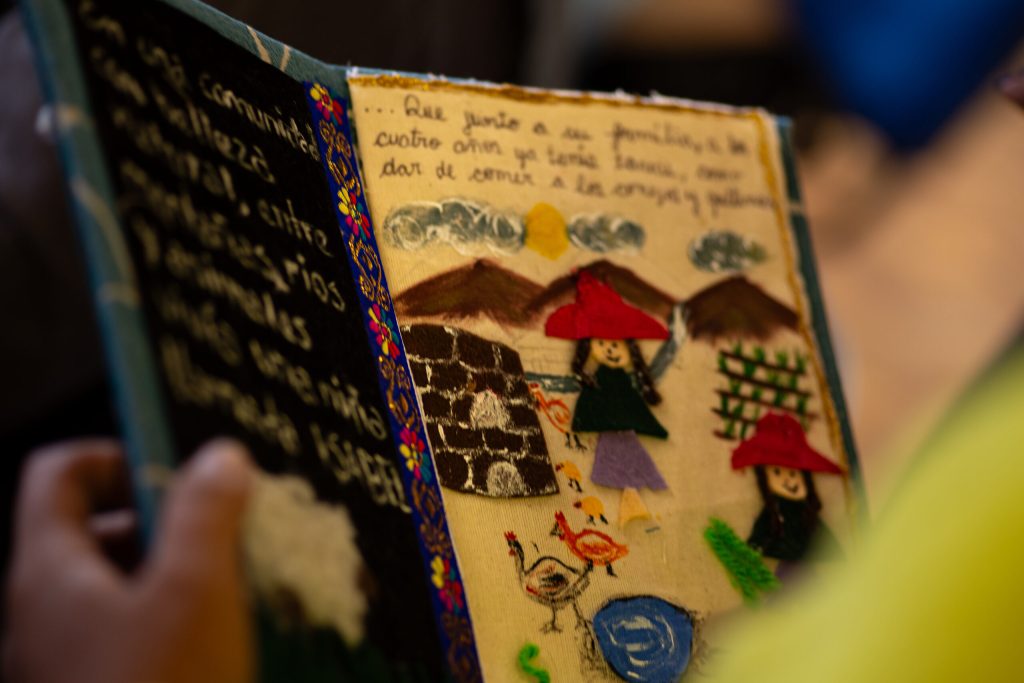 En una comunidad
con belleza
natural, entre
montañas, rios
y animales
vivía una niña
llamada ISABEL
... Que junto a su familia, a los
cuatro años ya tenía tareas, como
dar de comer a los conejos y gallinas